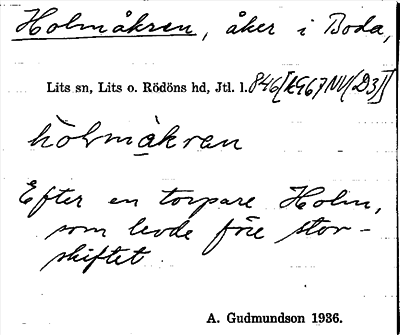 Holmåkren, åker i Boda,
Lits sn, Lits o. Rödöns hd, Jtl. l. 846[19G67NV(D3)]
hòlmàkran
Efter en torpare Holm,
som levde före stor-
skiftet.
A. Gudmundson 1936.